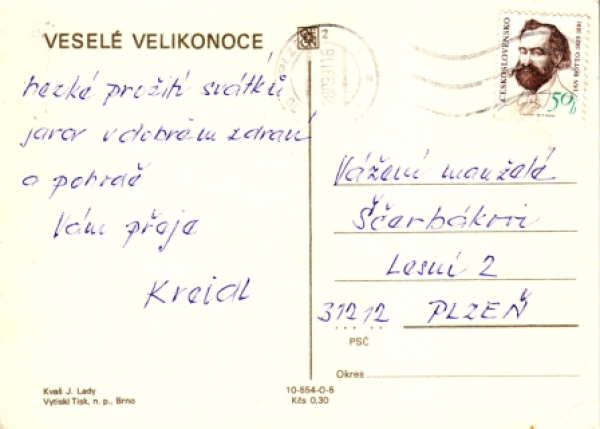 VESELÉ VELIKONOCE
hezké prožití svátků
jara v dobrém zdraví
a pohodě
Vám přeje
Kreidl
Kvaš J. Lady
Vytiskl Tisk, n. p., Brno
10-554-O-5
Kčs 0,30
ČESKOSLOVENSKO
JAN BOTTO 1829-1881
50h
Vážení manželé
Ščerbákovi
Lesní 2
312 12 PLZEŇ
PSČ
Okres